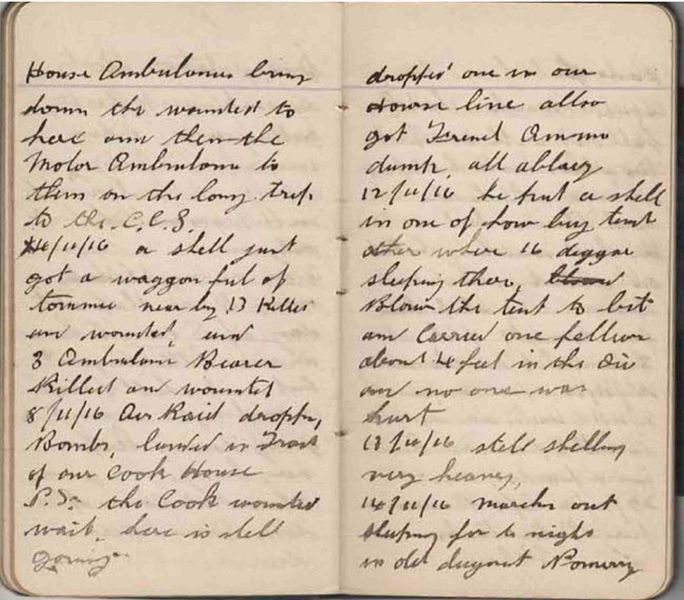 House Ambulances bring
down the wounded to
here and then the
Motor Ambulance to
them on the long trip
to the C.C.S.
/11/16 a shell just
got a waggon ful of
tommie near by 13 Killed
and wounded, and
3 Ambulance Bearer
Killed and wounded
8/11/16 Air Raid dropping
Bombs, landed in Front
of our Cook House
P.S. the Cook wounded
wait, here is still
going
dropped one in our
House line allso
got Ammo
dump, all ablazy
12/11/16 he put a shell
in one of how big tent
where 16 diggers
sleeping there,
Blown the tent to bit
and Carried one fellow
about 4 feet in the Air
and no one was
hurt
13/11/16 still shelling
very heavy,
14/11/16 marche out
sleeping for to night
in old dugout